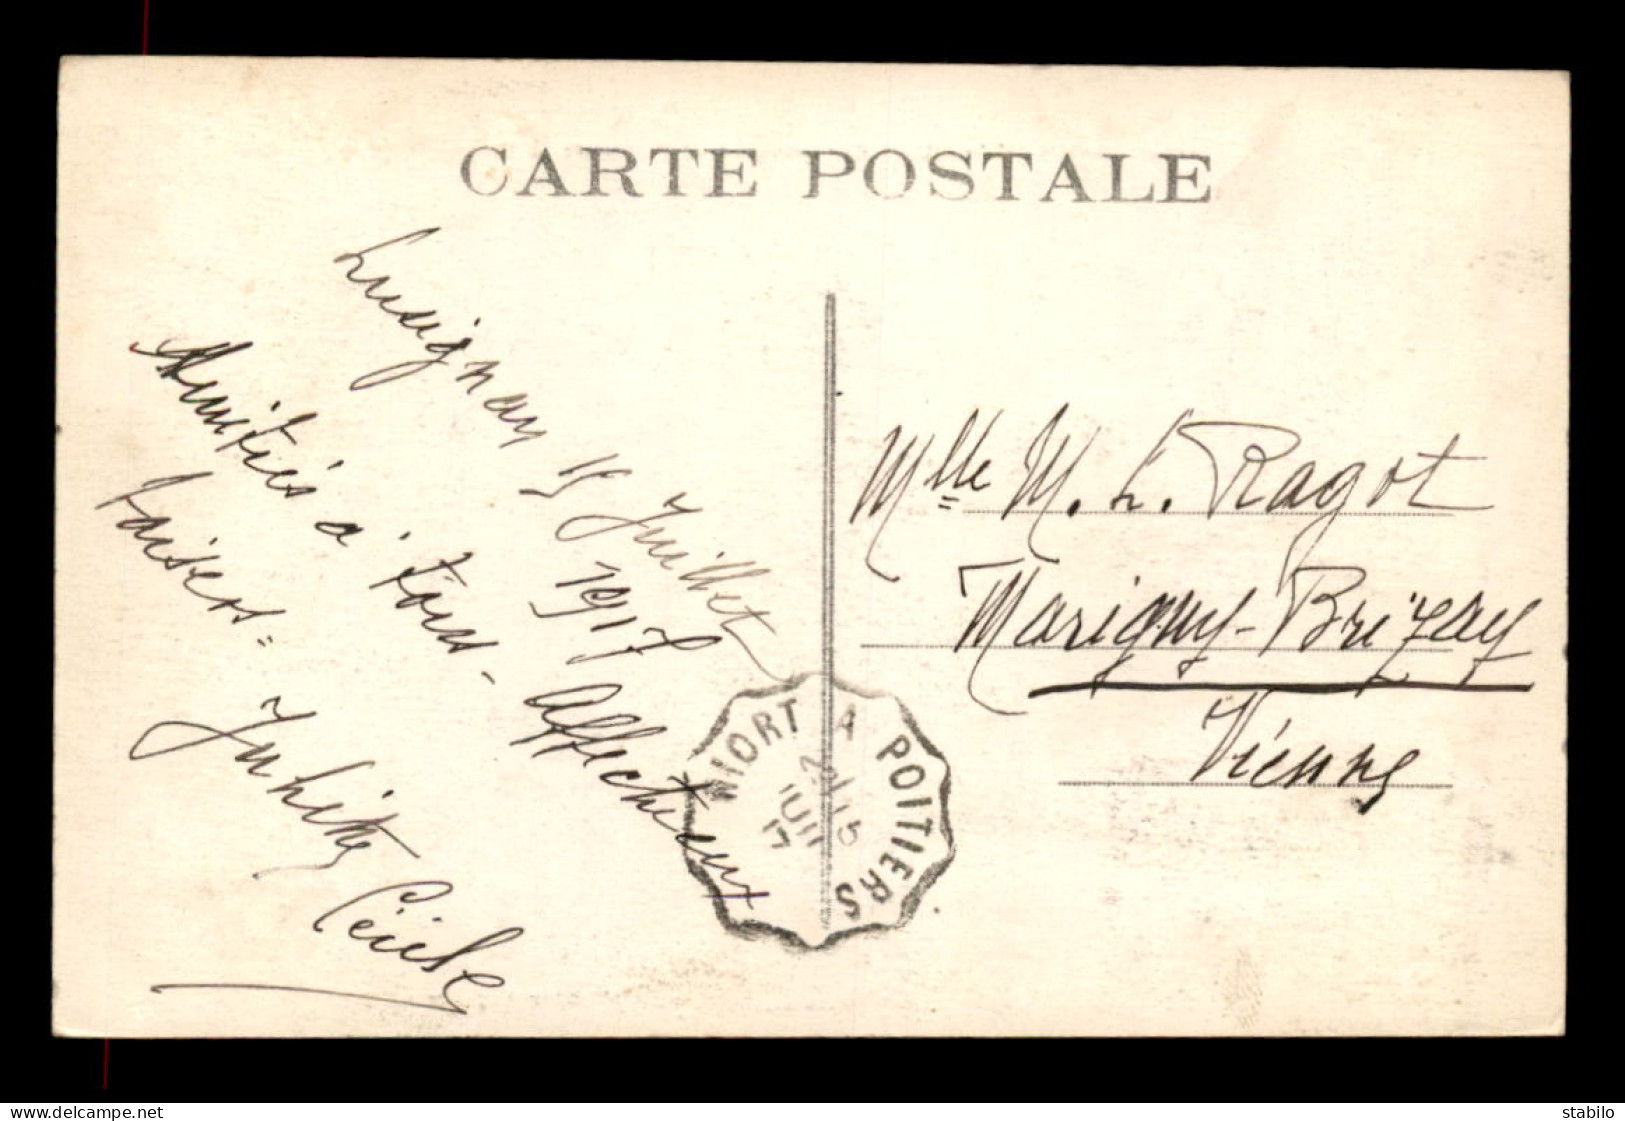 CARTE POSTALE
Lusignan 15 Juillet
1917
Amitiés à tous - Affectueux
baisers =
Cécile
Mlle M. L. Ragot
Marigny-Brizay
Vienne
NIORT A POITIERS
15
JUIL
17
www.delcampe.net
stabilo